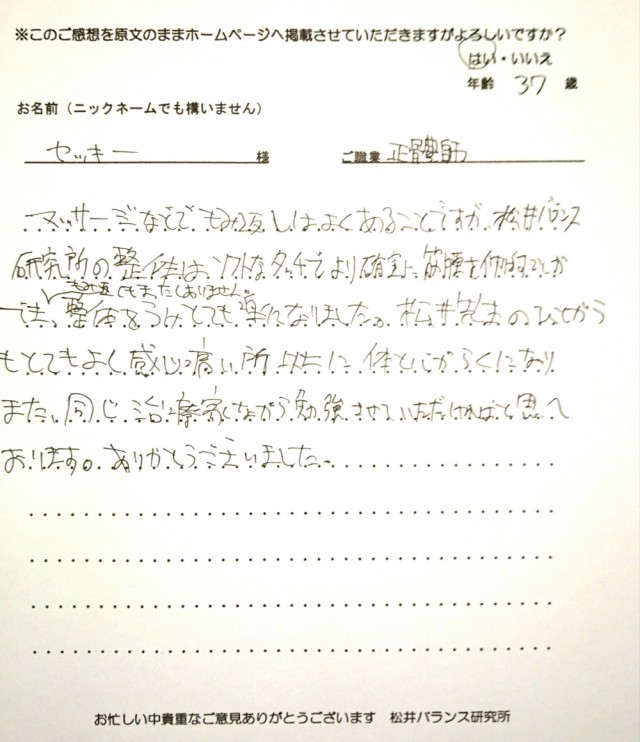 ※このご感想を原文のままホームページへ掲載させていただきますがよろしいですか?
はい・いいえ
年齢 37 歳
お名前(ニックネームでも構いません)
セッキー 様 ご職業 整体師
マッサージなどでもみ返しはよくあることですが、松井バランス
研究所の整体はソフトなタッチでより確実に筋腱を
もみ返しもまったくありません。
です。整体をうけとても楽になりました。松井先生の
もとてもよく感じ痛い所以上に体と心がらくになり
また、同じ治療家ながら勉強させていただければと思って
おります。ありがとうございました。
お忙しい中貴重なご意見ありがとうございます 松井バランス研究所